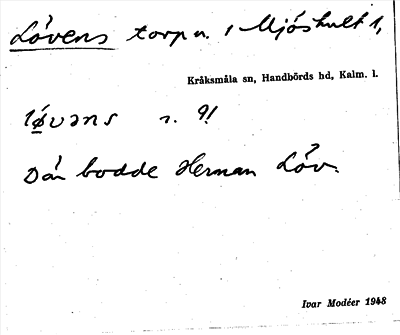 Lövens torp u. Mjöshult 1,
Kråksmåla sn, Handbörds hd, Kalm. l.
lø̀vəns r. 9!
Där bodde Herman Löv.
Ivar Modéer 1948